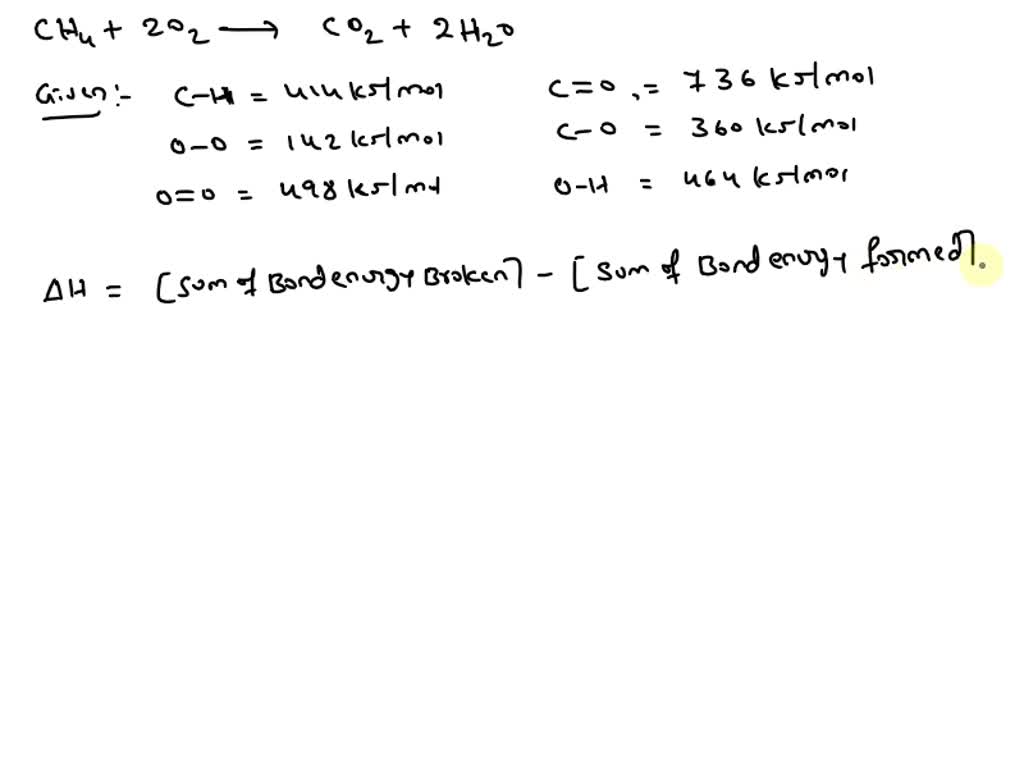 CH₄ + 2O₂ ⟶ CO₂ + 2H₂O
Given:- C-H = 414 kJ/mol C=O, = 736 kJ/mol
O-O = 142 kJ/mol C-O = 360 kJ/mol
O=O = 498 kJ/mol O-H = 464 kJ/mol
ΔH = [Sum of Bond energy Broken] - [Sum of Bond energy formed].